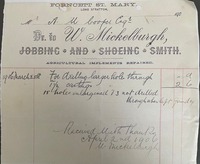 FORNCETT ST. MARY,
LONG STRATTON,
Mr. A. M. Cooper Esqr.
Dr. to W. Mickelburgh,
JOBBING AND SHOEING SMITH.
AGRICULTURAL IMPLEMENTS REPAIRED.
For drilling larger hole through
1 2 6
10 holes enlarged & 3 not drilled
through
Received With Thanks
April 2nd
W. Mickelburgh